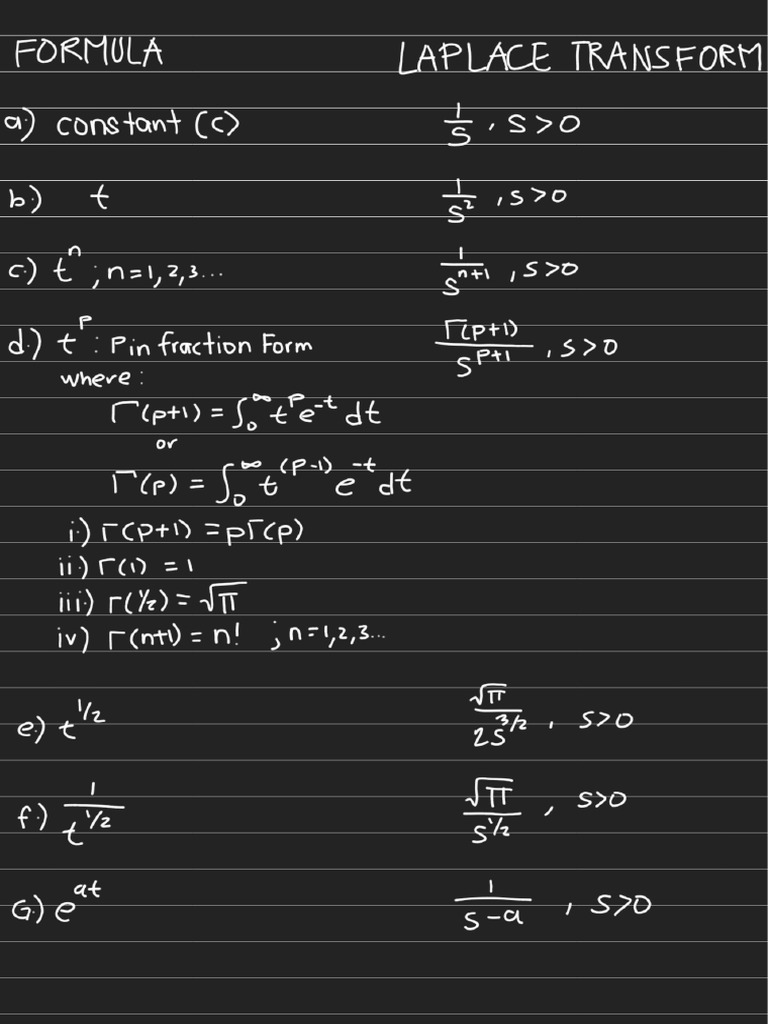 FORMULA LAPLACE TRANSFORM
a.) constant (c) 1/S , S>0
b.) t 1/S² , S>0
c.) tⁿ ; n=1, 2, 3... 1/Sⁿ⁺¹ , S>0
d.) t^P : P in fraction Form Γ(P+1)/S^(P+1) , S>0
where:
Γ(p+1) = ∫₀^∞ t^p e^-t dt
or
Γ(p) = ∫₀^∞ t^(p-1) e^-t dt
i.) Γ(p+1) = pΓ(p)
ii.) Γ(1) = 1
iii.) Γ(1/2) = √π
iv) Γ(n+1) = n! ; n=1,2,3...
e.) t^1/2 √π/2S^3/2 , S>0
f.) 1/t^1/2 √π/S^1/2 , S>0
G.) e^at 1/S-a , S>0